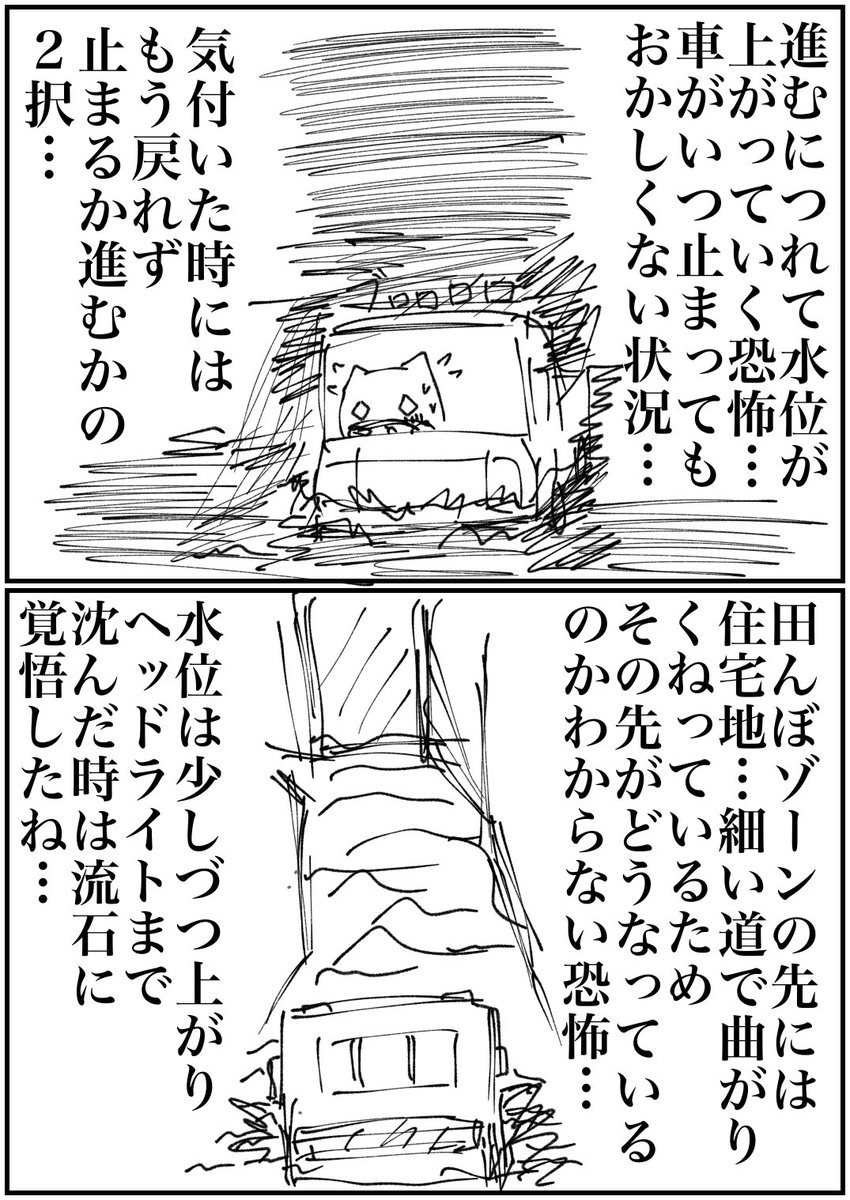 進むにつれて水位が
上がっていく恐怖…
車がいつ止まっても
おかしくない状況…
ブロロロロ
気付いた時には
もう戻れず
止まるか進むかの
２択…
田んぼゾーンの先には
住宅地…細い道で曲がり
くねっているため
その先がどうなっている
のかわからない恐怖…
水位は少しづつ上がり
ヘッドライトまで
沈んだ時は流石に
覚悟したね…